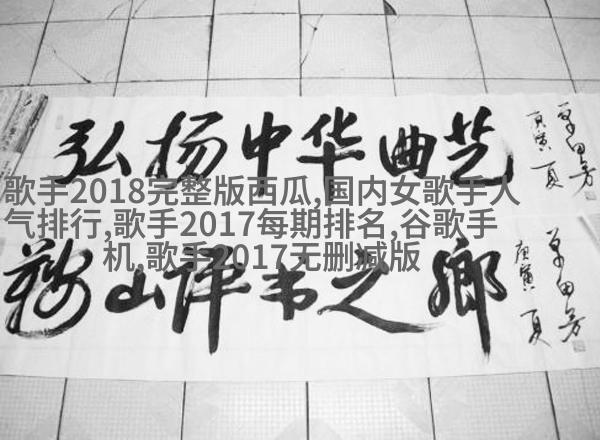 弘扬中华曲艺
庚寅夏
单田芳
歌手2018完整版西瓜,国内女歌手人
气排行,歌手2017每期排名,谷歌手
机,歌手2017无删减版
鞍山评书之鄉
庚寅夏
单田芳